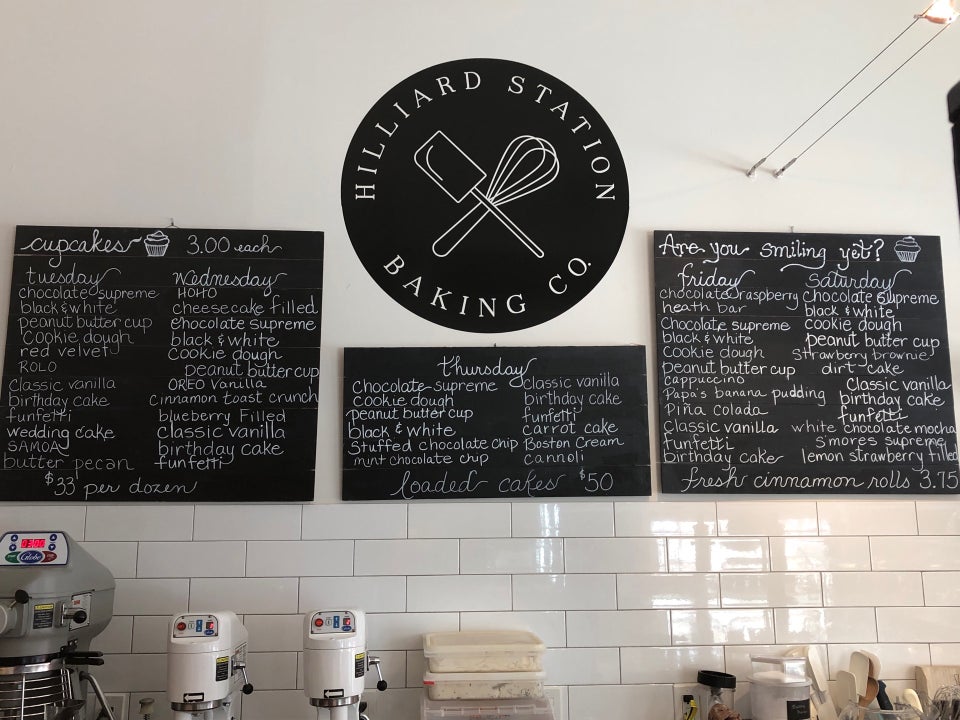 HILLIARD STATION
BAKING CO.
cupcakes 3.00 each
tuesday
chocolate supreme
black & white
peanut butter cup
Cookie dough
red velvet
ROLO
Classic vanilla
birthday cake
funfetti
wedding cake
SAMOA
butter pecan
Wednesday
HOHO
cheesecake filled
chocolate supreme
black & white
cookie dough
peanut butter cup
OREO vanilla
cinnamon toast crunch
blueberry Filled
classic vanilla
birthday cake
funfetti
$33 per dozen
thursday
chocolate supreme
cookie dough
peanut butter cup
black & white
Stuffed chocolate chip
mint chocolate chip
classic vanilla
birthday cake
funfetti
carrot cake
Boston Cream
cannoli
loaded cakes $50
Are you smiling yet?
friday
chocolate raspberry
heath bar
Chocolate supreme
black & white
cookie dough
peanut butter cup
cappuccino
Papa's banana pudding
Piña colada
Classic vanilla
funfetti
birthday cake
Saturday
chocolate supreme
black & white
cookie dough
peanut butter cup
Strawberry brownie
dirt cake
classic vanilla
birthday cake
funfetti
white chocolate mocha
s'mores supreme
lemon strawberry filled
fresh cinnamon rolls 3.75
Globe